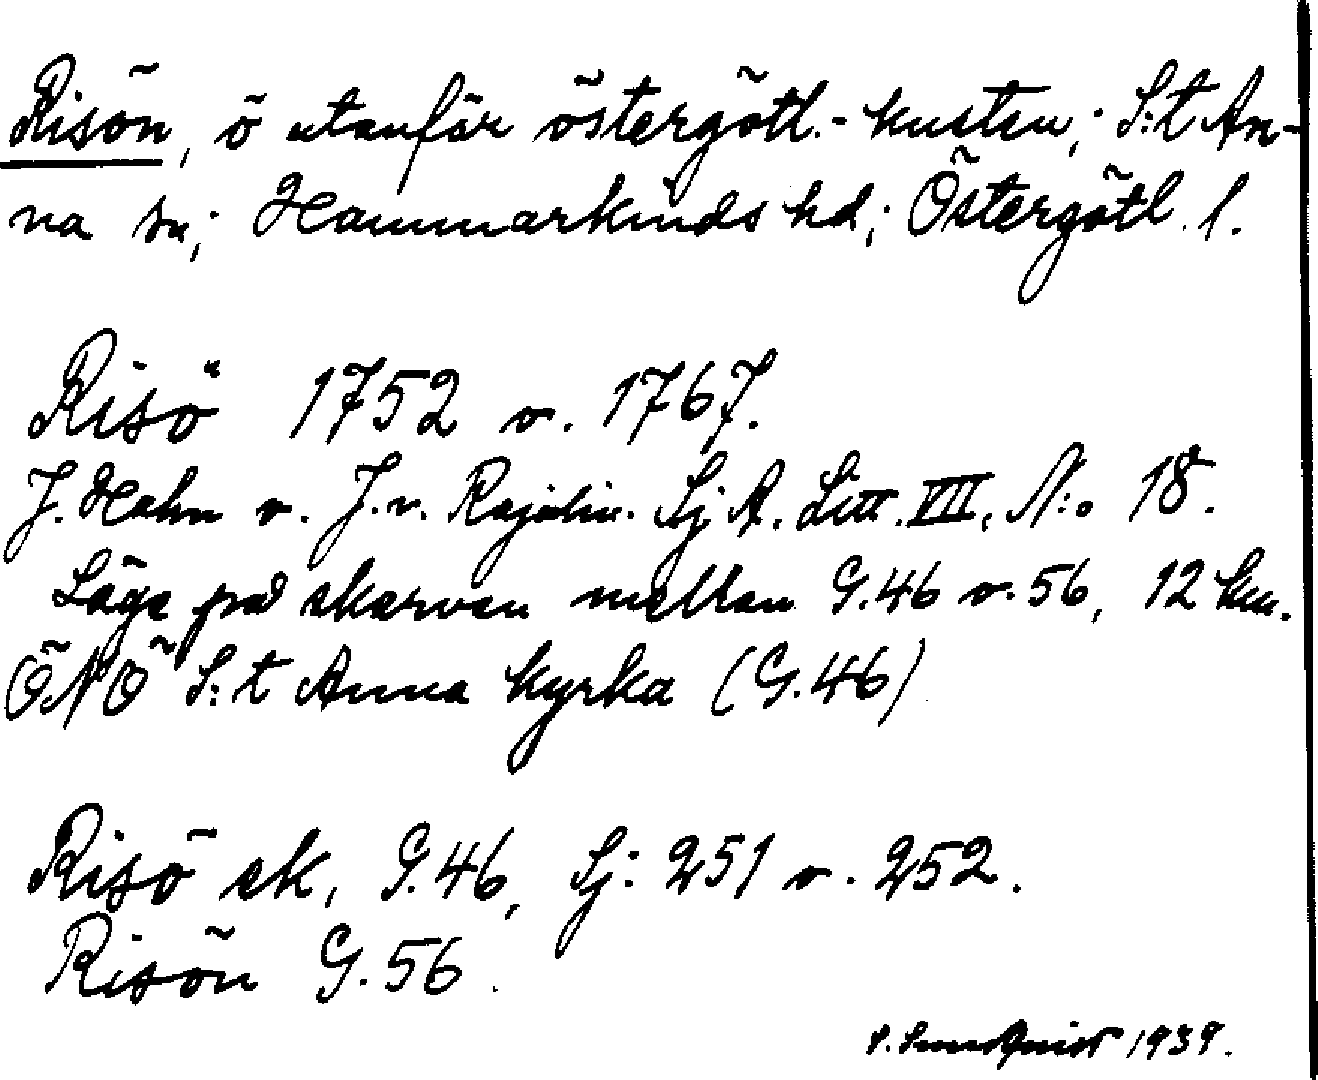 Risön, ö utanför östergötl.-kusten; S:t An-
na sn; Hammarkinds hd; Östergötl. l.
Risö 1752 o. 1767.
J. Hahn o. J. v. Rajalin. Sj A. Litt. VII, N:o 18.
Läge på skarven mellan G.46 o. 56, 12 km.
ÖNÖ S:t Anna kyrka (G.46)
Risö sk, G.46, Sj: 251 o. 252.
Risön G.56.
S. Sundquist 1939.